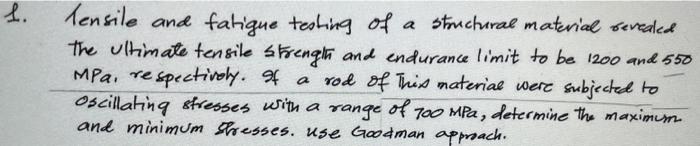 1. Tensile and fatigue testing of a structural material revealed
the ultimate tensile strength and endurance limit to be 1200 and 550
MPa, respectively. If a rod of this material were subjected to
oscillating stresses with a range of 700 MPa, determine the maximum
and minimum stresses. use Goodman approach.